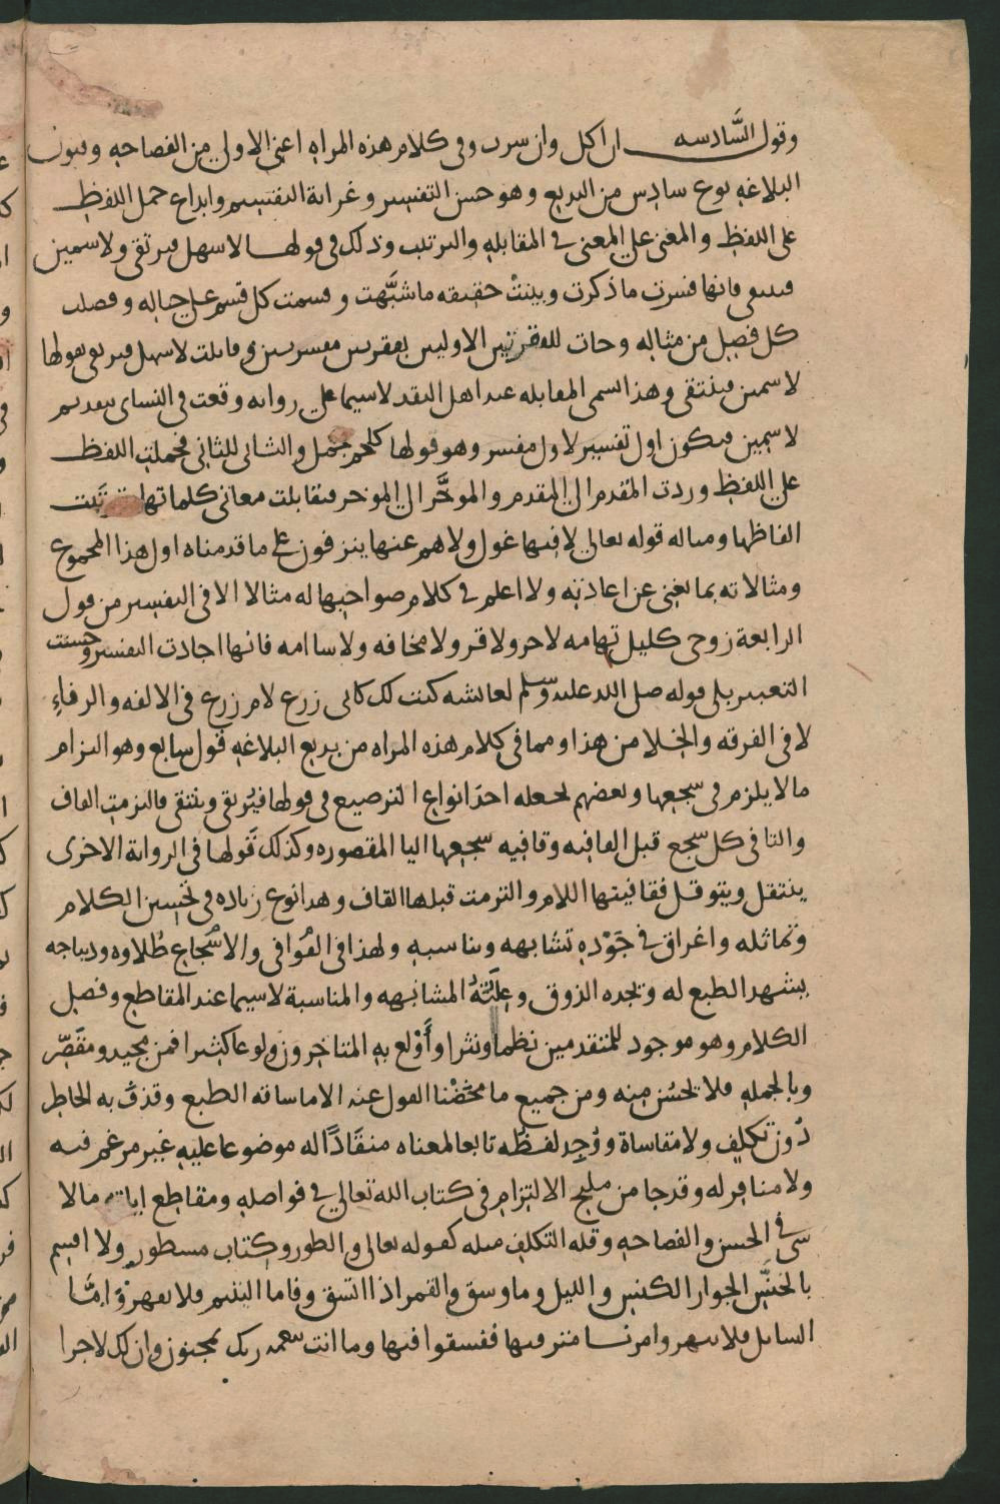 وقول السَّادسه ان اكل وان سرب وفى كلام هذه المراه اعنى الاولى من الفصاحه وفنون
البلاغه نوع سادس من البديع وهو حسن التفسير وغرابة التقسيم وابداع حمل اللفظ
على اللفظ والمعنى على المعنى فى المقابله والترتيب وذلك فى قولها لاسهل فيرتقى ولا سمين
فينتقى فانها فسرت ما ذكرت وبينتْ حقيقه ما شبَّهت وقسمت كل قسم على حياله وفصلت
كل فصل من مثاله وجات للفقرتين الاوليين بفقرتين مفسرتين وقابلت لاسهل فيرتقى بقولها
لا سمين فينتقى وهذا يسمى المقابله عند اهل النقد لاسيما على روايه وقعت فى النساى بتقديم
لا سمين فيكون اول تفسير لاول مفسر وهو قولها كلحم جمل والثانى للثانى فحملت اللفظ
على اللفظ وردت المقدم الى المقدم والموخَّر الى الموخر فتقابلت معانى كلماتها وترتبت
الفاظها ومثاله قوله تعالى لا فيها غول ولا هم عنها ينزفون على ما قدمناه اول هذا المجموع
ومثالاته بما يغنى عن اعادته ولا اعلم فى كلام صواحبها له مثالا الا فى التفسير من قول
الرابعة زوجى كليل تهامه لا حر ولا قر ولا مخافه ولا سامه فانها اجادت التفسير وحسنت
التعبير بلى قوله صلى الله عليه وسلم لعائشه كنت لك كابى زرع لام زرع فى الالفه والرفاءِ
لا فى الفرقه والخلا من هذا ومما فى كلام هذه المراه من بديع البلاغه قول سابع وهو التزام
ما لا يلزم فى سجعها وبعضهم يجعله احد انواع الترصيع فى قولها فيُرتقى وينتقى فالتزمت القاف
والتا فى كل سجع قبل القافيه وقافيه سجعها اليا المقصوره وكذلك قولها فى الرواية الاخرى
ينتقل ويتوقل فقافيتها اللام والتزمت قبلها القاف وهذا نوع زياده فى تحسين الكلام
وتماثله واغراق فى جَوْده تشابهه وتناسبه ولهذا فى القوافى والاسْجاع طُلاوه وديباجه
يشهد الطبع له وتجده الذوق وعلَّتهُ المشابهه والمناسبة لاسيما عند المقاطع وفصل
الكلام وهو موجود للمتقدمين نظما ونثرا وأَوْلع به المتاخرون ولوعا كثيرا فمن مجيد ومقَصِّر
وبالجمله فلا يحسُن منه ومن جميع ما محَضْنا القول عنه الا ما ساقه الطبع وقذفَ به الخاطر
دُون تكلف ولا مقاساة ووُجد لفظه تابعا لمعناه منقَادًا له موضوعا عليه غير مرغم فيه
ولا منافر له وقد جا من مليح الالتزام فى كتاب الله تعالى فى فواصله ومقاطع اياته مالا
فى الحسن والفصاحه وقله التكلف مثله كقوله تعالى والطور وكتاب مسطور ولا اقسم
بالخنَّس الجوار الكنس والليل وما وسق والقمر اذا اتسق وفاما اليتيم فلا تقهر وامَّا
السائل فلا تنهر وامرنا مترفيها ففسقوا فيها وما انت بنعمه ربك بمجنون وان لك لاجرا